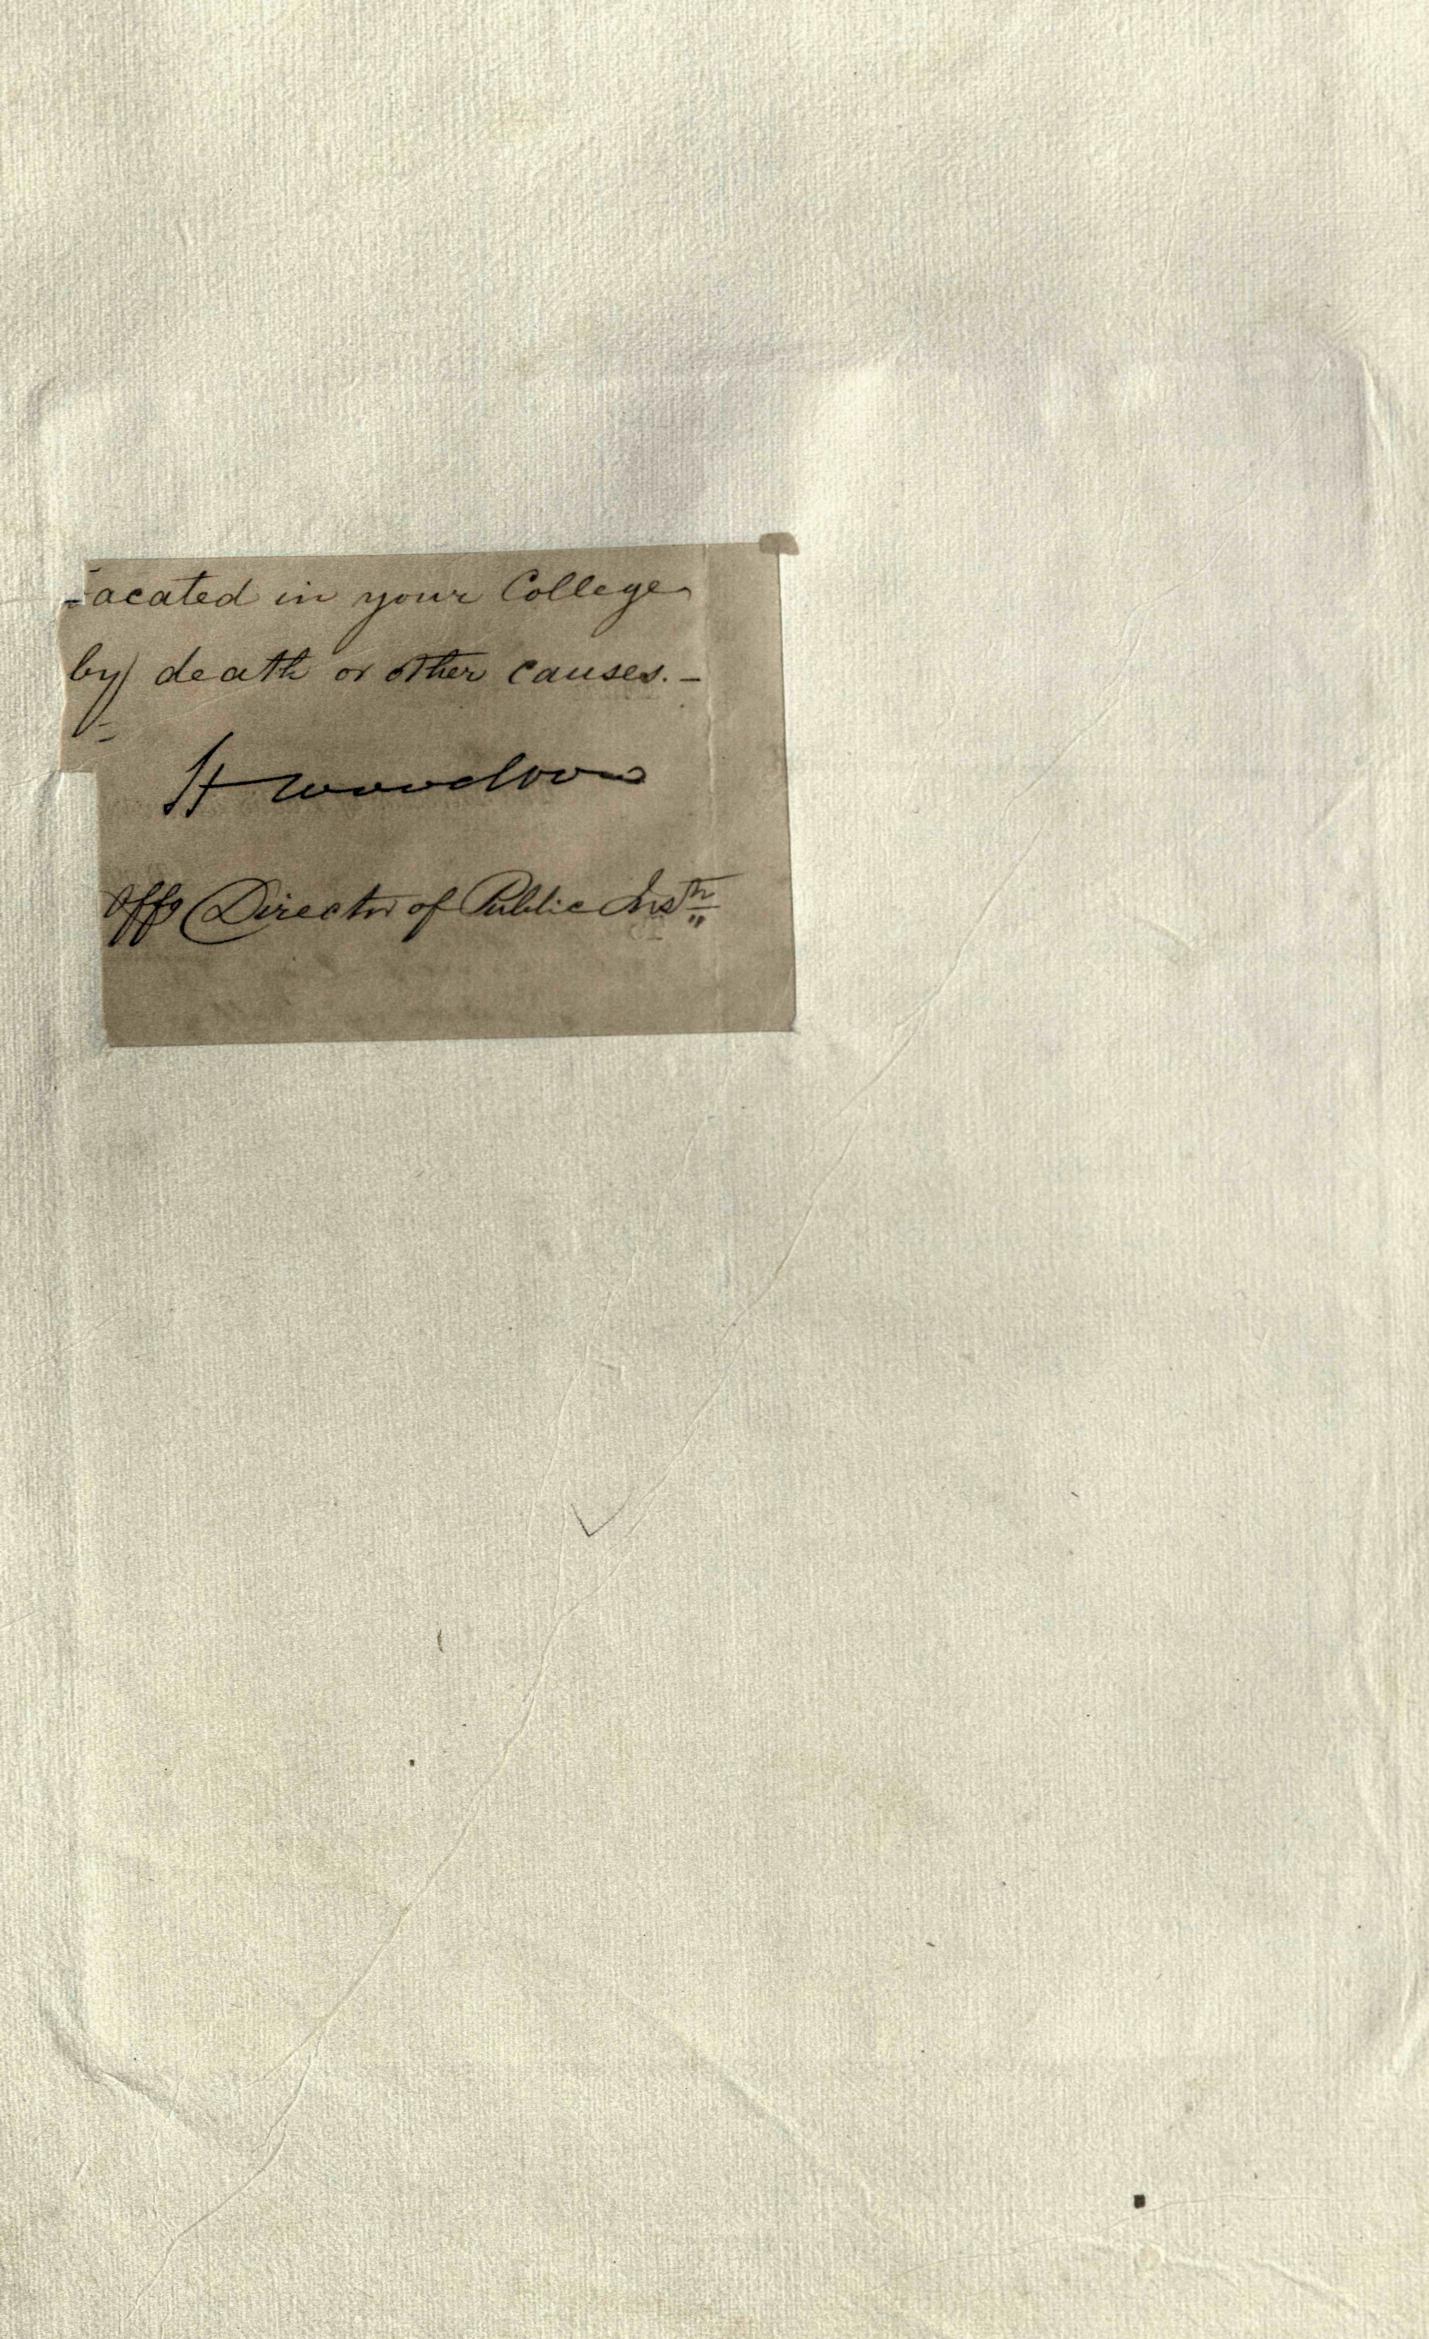 vacated in your College
by death or other causes. –
H Woodrow
Offg Director of Public Instn